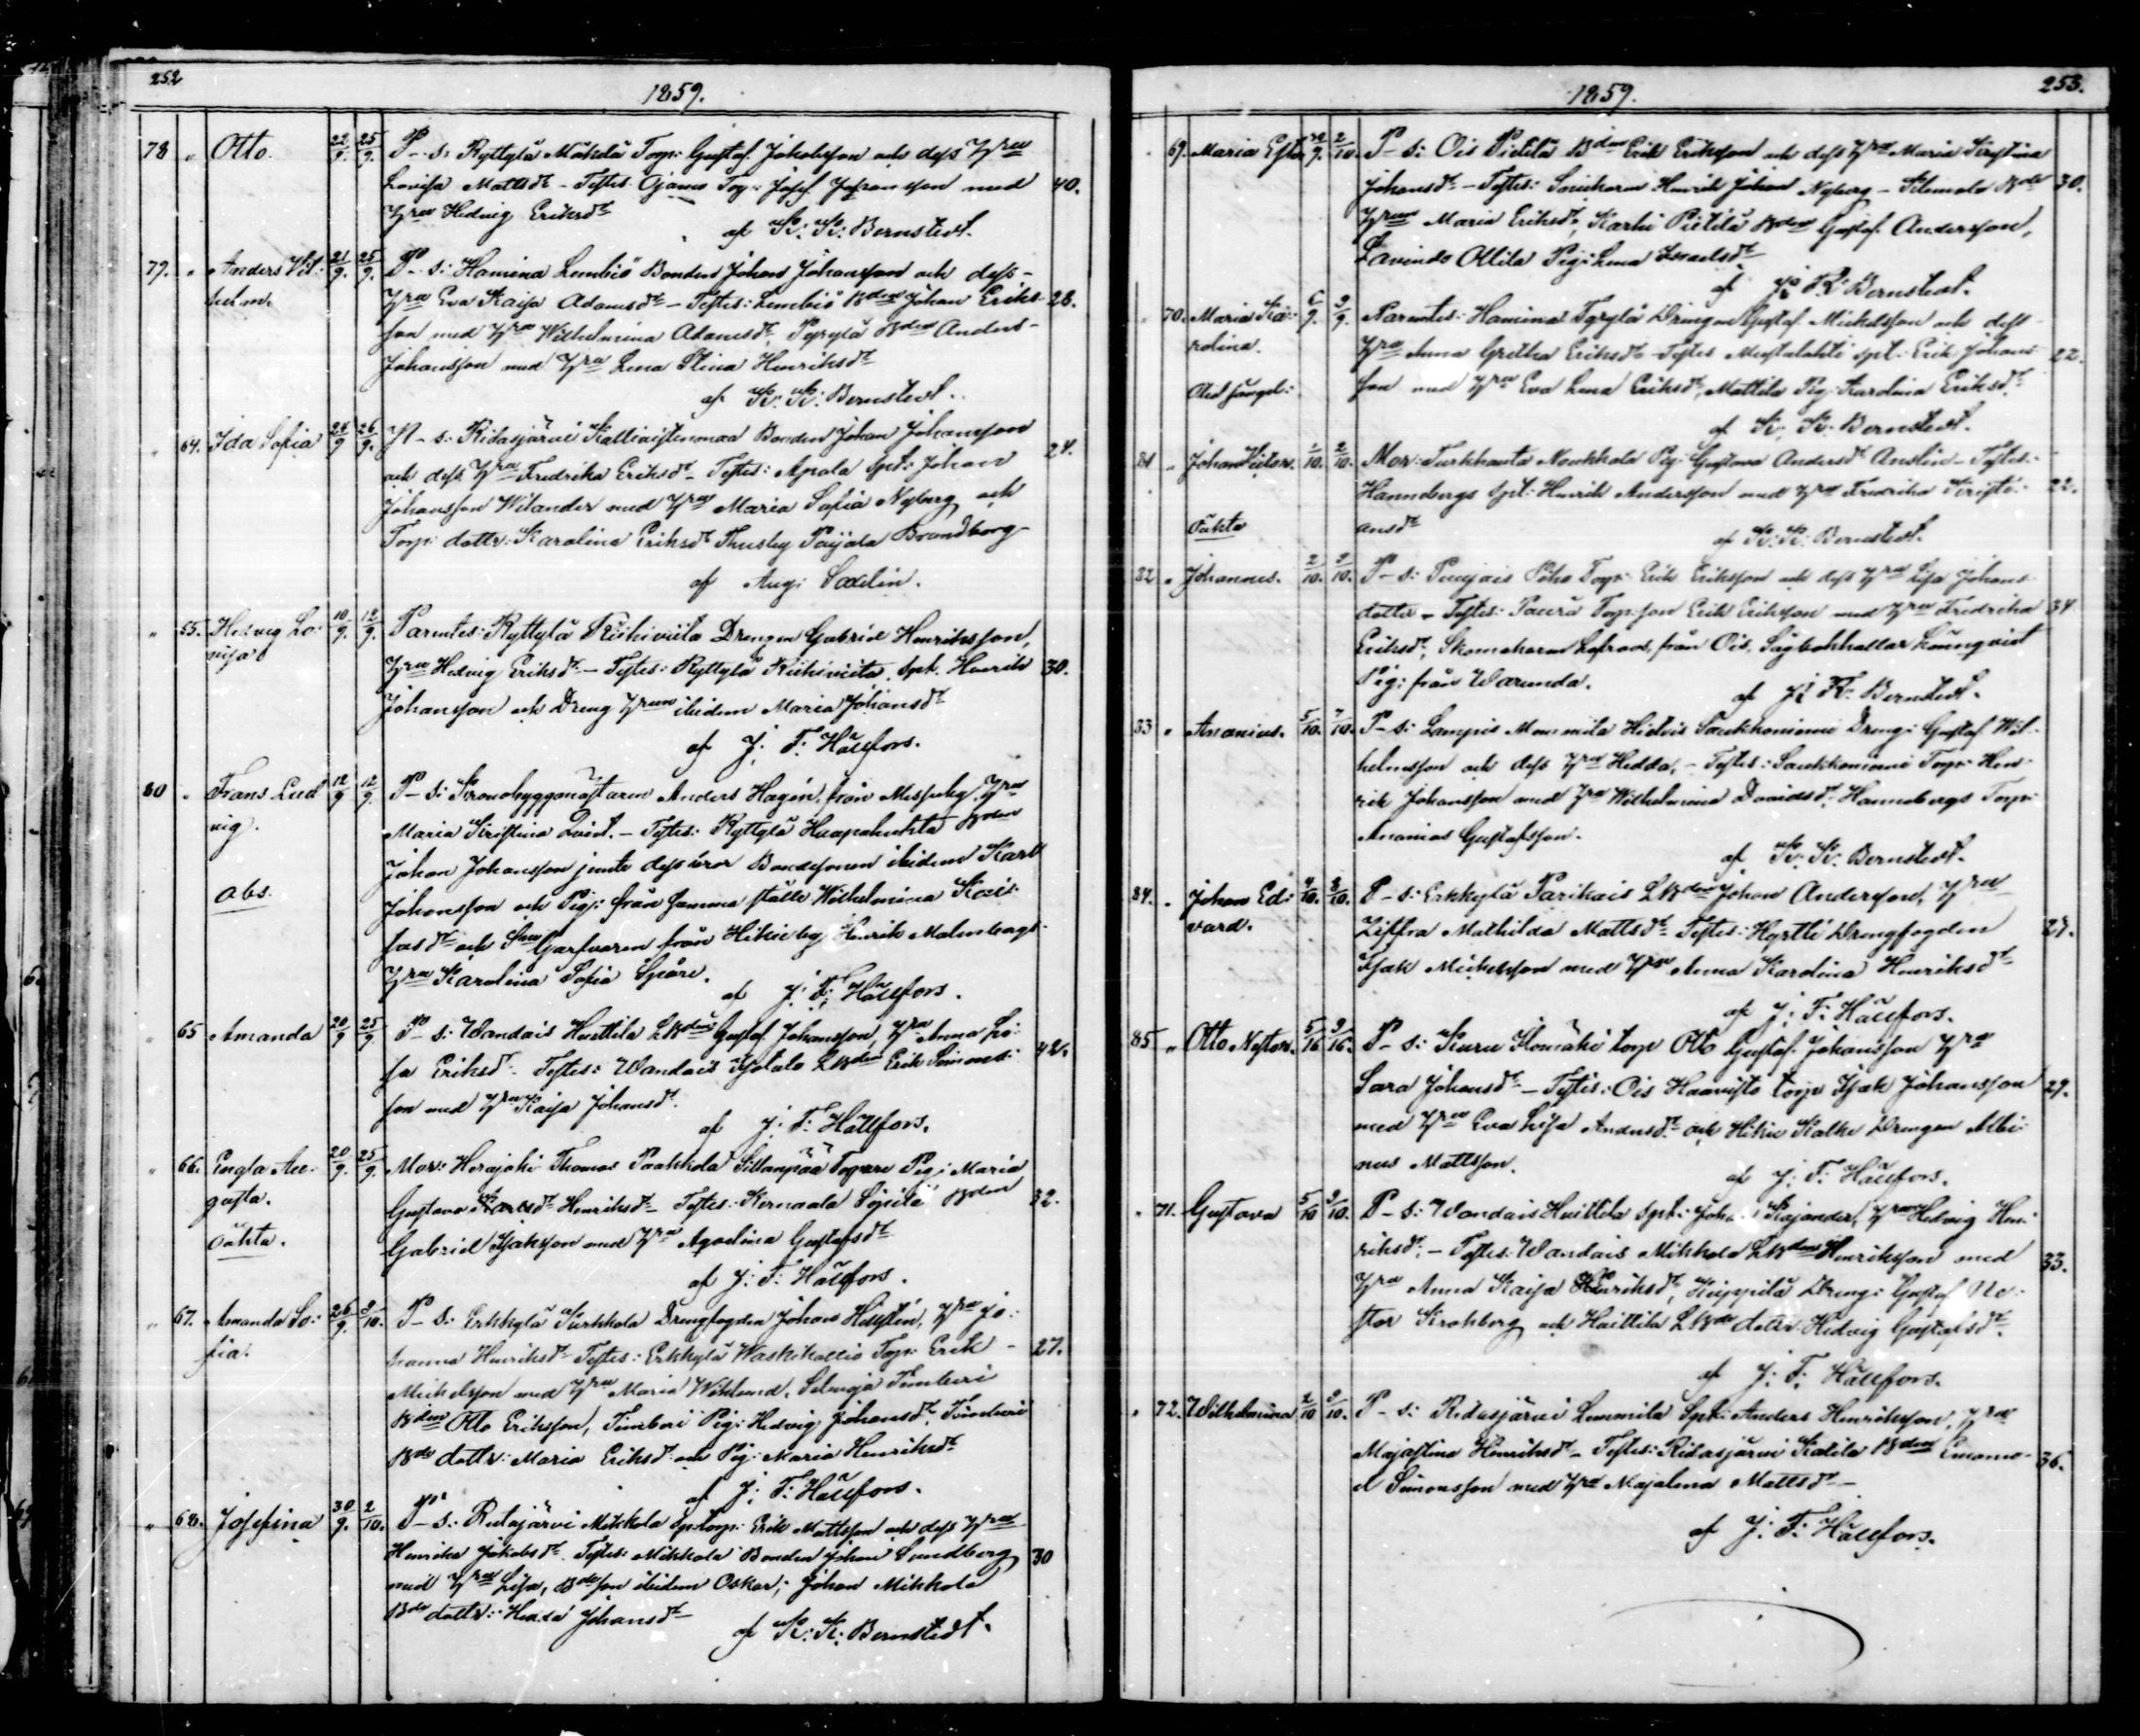 252
1859.
78 " Otto. 22/9. 25/9. P-s: Ryttylä Mäkelä Torp: Gustaf Jakobsson och dess Hru
Lovisa Mattsdr - Testes: Ojanen Torp: Josef Johansson med 40.
Hru Hedvig Eriksdr
af K: K: Bernstedt.
79. " Anders Vil: 21/9. 25/9. P-s: Hamina Lembiö Bonden Johan Johansson och dess-
helm. Hru Eva Kajsa Adamsdr - Testes: Lembiö Bden Johan Eriks- 28.
son med Hru Wilhelmina Adamsdr, Pyrylä Bden Anders
Johansson med Hru Lena Stina Henriksdr
af K: K: Bernstedt.
" 64. Ida Sofia 24/9 26/9. P-s: Ridasjärvi Kallioistenmaa Bonden Johan Johansson 24.
och dess Hru Fredrika Eriksdr - Testes: Spt: Johan
Johansson Wilander med Hru Maria Sofia Nyberg och
Torp: dottr: Karolina Eriksdr Thusby Brandborg
af Aug: Saxelin.
" 55. Hedvig Lo- 10/9. 12/9. Parentes: Ryttylä Kiskiviita Drengen Gabriel Henriksson,
visa Hru Hedvig Eriksdr - Testes: Ryttylä Spt. Henrik 30.
Johansson och Dreng Hrun ibidem Maria Johansdr
af J: F: Hällfors.
80 " Frans Lud 12/9 12/9. P-s: Kronobyggmästaren Anders Hagén, från Messuby Hru
vig. Maria Kristina Qvist. - Testes: Ryttylä Haapahuhta Bden
Johan Johansson jemte dess bror Bondesonen ibidem Karl
abs. Johansson och Pig: från samma ställe Wilhelmina Kais
sasdr och Garfvaren från Hikiä by Henrik Malmbergs
Hru Karolina Sofia Spåre.
af J: F: Hällfors.
" 65 Amanda 20/9 25/9 P-s: Wandais Huittila LBden Gustaf Johansson, Hru Anna Lo:
sa Eriksdr. Testes: Wandais Isotalo LBden Erik Simons- 42.
son med Hru Kajsa Johansdr.
af J: F: Hällfors.
" 66. Engla Au- 20/9. 25/9. Mor: Herajoki Thomas Paakkola Sillanpää Pig: Maria
gusta. Gustava Karlsdr Henriksdr - Testes: Kernaala Bden 32.
oäkta. Gabriel Isaksson med Hru Agatina Gustafsdr
af J: F: Hällfors.
" 67. Amanda So: 26/9. 2/10. P-s: Erkkylä Purkkola Drengfogden Johan Hellstén, Hru Jo:
fia. hanna Henriksdr Testes: Erkkylä Waskikallio Torp: Erik - 27.
Mickelsson med Hru Maria Wiklund, Selänoja Timberi
Bden Otto Eriksson, Timberi Pig: Hedvig Johansdr, Timberi
Bde dottr: Maria Eriksdr och Pig: Maria Henriksdr
af J: F: Hällfors.
" 68. Josefina 30/9. 2/10. P-s: Rutajärvi Mikkola Erik Mattsson och dess Hru
Henrika Jakobsdr. Testes: Mikkola Bonden Johan Sundberg 30
med Hru Lisa, Bdeson ibidem Oskar; Johan Mikkola
Bde dottr: Hedda Johansdr -
af K: K: Bernstedt.
1859.
253.
69. Maria Ester 30/9. 2/10. P-s: Ois Pietilä Bden Erik Eriksson och dess Hru Maria Kristina
Johansdr - Testes: Henrik Johan Nyberg - Bde 30.
Hrun Maria Eriksdr, Karhi Pietilä Bden Gustaf Andersson,
Lavindo Ollila Pig: Lena Israelsdr
af K: K: Bernstedt.
70. Maria Ka: 6/9. 9/9. Parentes: Hamina Pyrylä Drengen Gustaf Mickelsson och dess
rolina. Hru Anna Gretha Eriksdr Testes Mustalahti spt: Erik Johans 22.
son med Hru Eva Lena Eriksdr, Mattila Pig: Karolina Eriksdr.
af K: K: Bernstedt.
81 " Johan Viktor. 1/10. 2/10. Mor: Turkhauta Nenkkola Pig: Gustava Andersdr Anslin - Testes:
Hannebergs Spt: Henrik Andersson med Hru Fredrika Kristi- 22.
oäkta ansdr
af K: K: Bernstedt.
82 " Johannes. 2/10. 3/10. P-s: Puujais Torp: Erik Eriksson och dess Hru Lisa Johans
dotter - Testes: Torp:son Erik Eriksson med Hru Fredrika 34
Eriksdr, Skomakaren från Ois, Lönnqvist
Pig: från Warunda.
af K: K: Bernstedt.
83 " Ananias. 5/10. 7/10. P-s: Lampis Mommila Hietois Saukkoniemi Dreng: Gustaf Wil-
helmsson och dess Hru Hedda, - Testes: Saukkoniemi Torp: Hen-
rik Johansson med Hru Wilhelmina Davidsdr. Hannebergs Torp:
Ananias Gustafsson.
af K: K: Bernstedt.
84. " Johan Ed: 4/10. 8/10. P-s: Erkkylä Parikais LBden Johan Andersson, Hru
vard. Ziffra Mathilda Mattsdr Testes: Hyrtti Drengfogden 27.
Isak Mickelsson med Hru Anna Karolina Henriksdr
af J: F: Hällfors.
85 " Otto Nestor. 5/10 9/10. P-s: Kuru Ilomäki torp Otto Gustaf Johansson Hru
Sara Johansdr - Testes: Ois Haavisto torp Isak Johansson 29.
med Hru Eva Lisa Andersdr och Hikiä Kalke Drengen Albi-
nus Mattsson.
af J: F: Hällfors.
" 71. Gustava 5/10 9/10. P-s: Wandais Huittila Spt: Joha Kajander, Hru Hedvig Hen-
riksdr, - Testes: Wandais Mikkola LBden Henriksson med 33.
Hru Anna Kaisa Henriksdr, Kuppila Dreng: Gustaf Ne-
stor Krohberg och Huittila LBde dottr Hedvig Gustafsdr.
af J: F: Hällfors.
" 72. Wilhelmina 2/10 9/10. P-s: Ridasjärvi Lemmila Spt: Anders Henriksson, Hru
Majastina Henriksdr - Testes: Ridasjärvi Kalila Bden Emanu- 36.
el Simonsson med Hru Majalena Mattsdr -
af J: F: Hällfors.